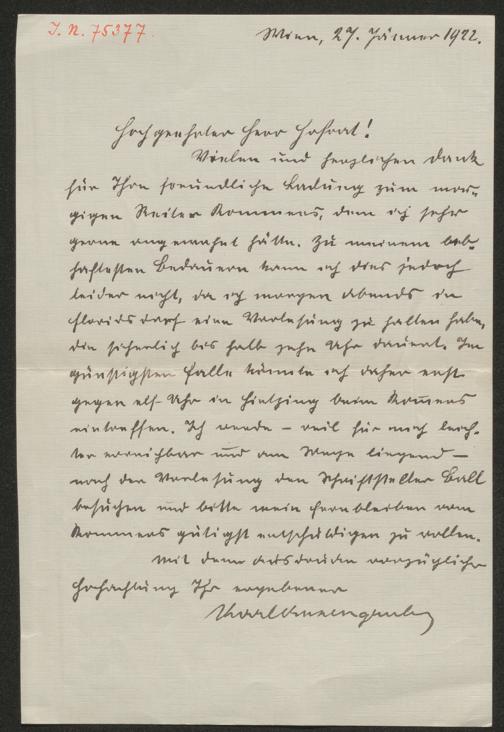 J. N. 75377.
Wien, 27. Jänner 1922.
Hochgeehrter Herr Hofrat!
Vielen und herzlichen Dank
für Ihre freundliche Ladung zum mor-
gigen Kommers, dem ich sehr
gerne angewohnt hätte. Zu meinem leb-
haftesten Bedauern kann ich dies jedoch
leider nicht, da ich morgen abends in
Floridsdorf eine Vorlesung zu halten habe,
die sicherlich bis halb zehn Uhr dauert. Im
günstigsten Falle könnte ich daher erst
gegen elf Uhr in Hietzing beim Kommers
eintreffen. Ich werde – weil für mich leich-
ter erreichbar und am Wege liegend –
nach der Vorlesung den Schriftsteller Ball
besuchen und bitte mein Fernbleiben vom
Kommers gütigst entschuldigen zu wollen.
Mit dem Ausdrucke vorzüglicher
Hochachtung Ihr ergebener
Karl